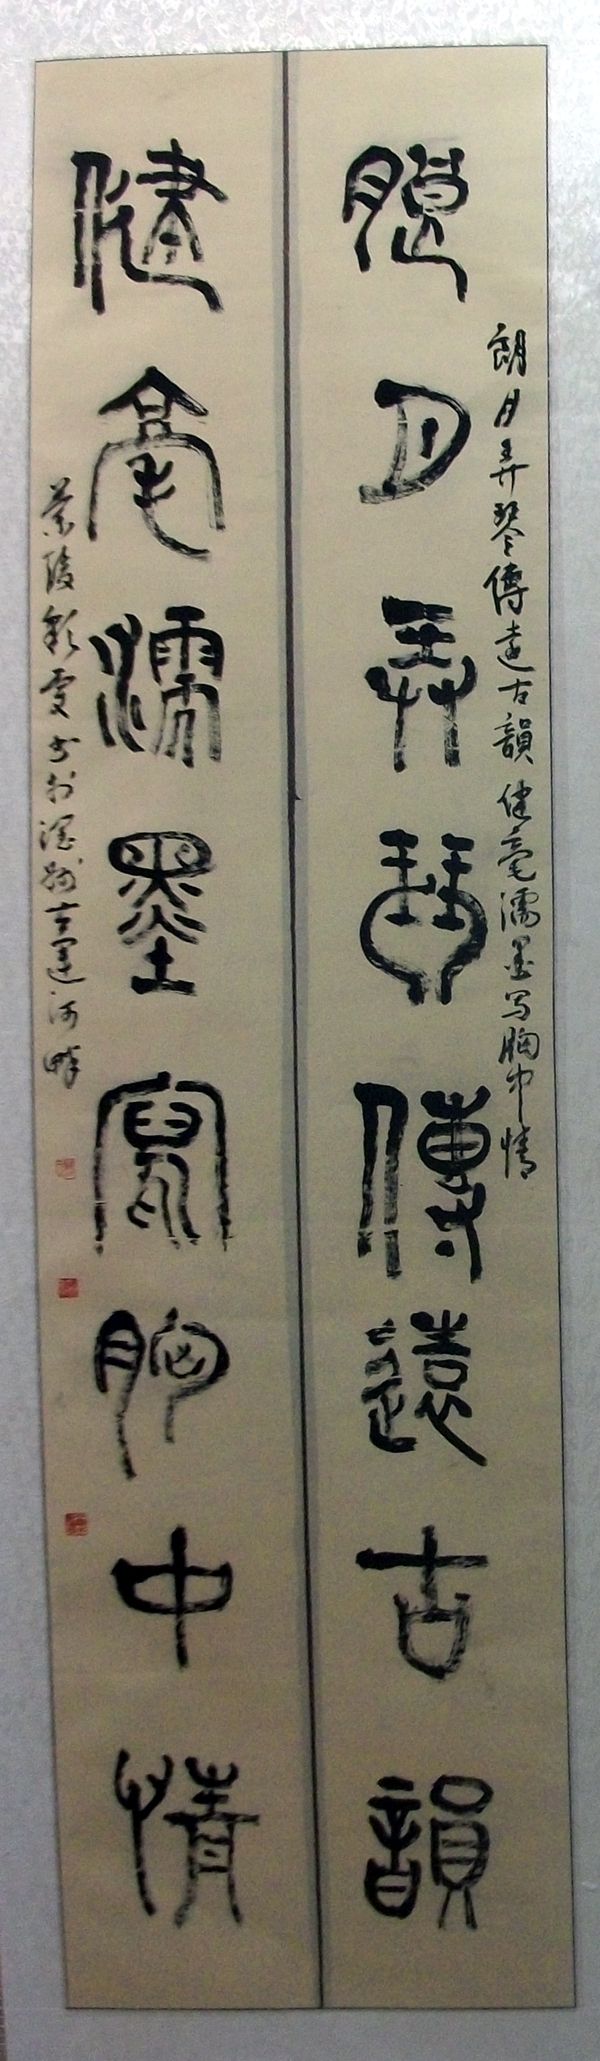 朗月弄琴傳遠古韻
朗月弄琴傳遠古韻 健毫濡墨写胸中情
健毫濡墨寫胸中情
书於 古運河畔